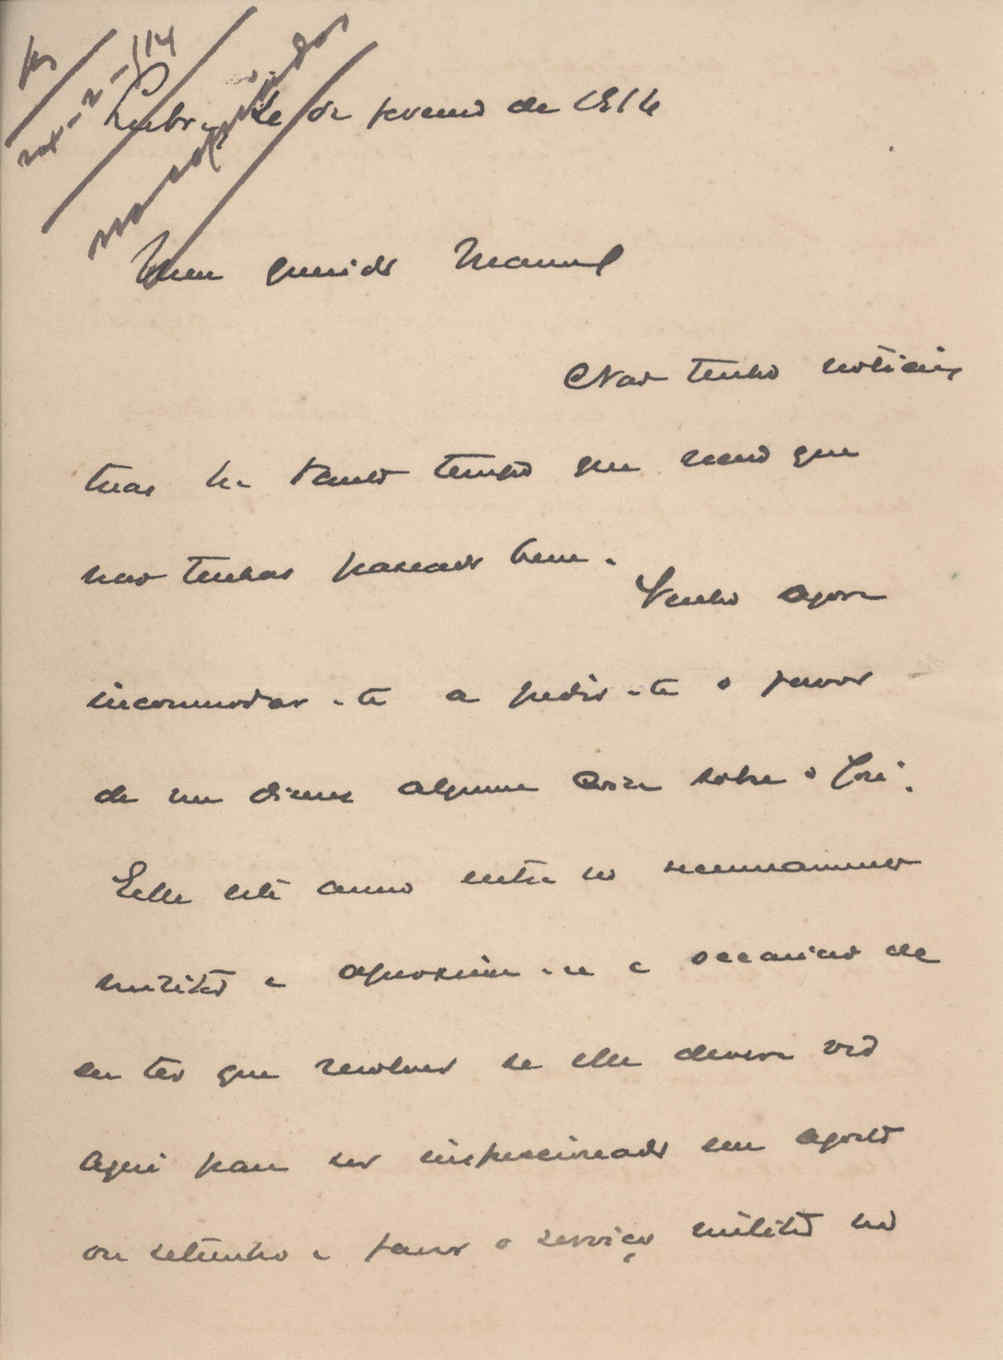 de fevereiro de 1914
Meu querido Manuel
Nao tenho noticias
tuas ha tanto tempo que receio que
nao tenhas passado bem.
Venho agora
incommodar-te a pedir-te o favor
de me dizeres alguma coisa sobre o José.
Elle este anno entra no recenseamento
militar e aproxima-se a occasiao de
eu ter que resolver se elle devera vir
aqui para ser inspeccionado em agosto
ou setembro e fazer o serviço militar no